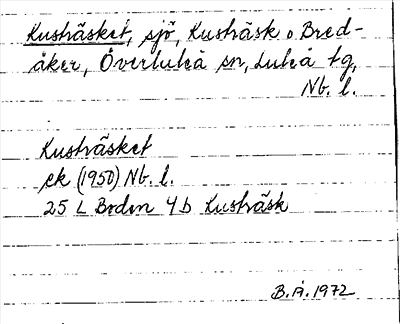 Kusträsket, sjö, Kusträsk o Bred-
åker, Överluleå sn, Luleå tg,
Nb. l.
Kusträsket
ek (1950) Nb. l.
25 L Boden 4 b Kusträsk
B.Å. 1972